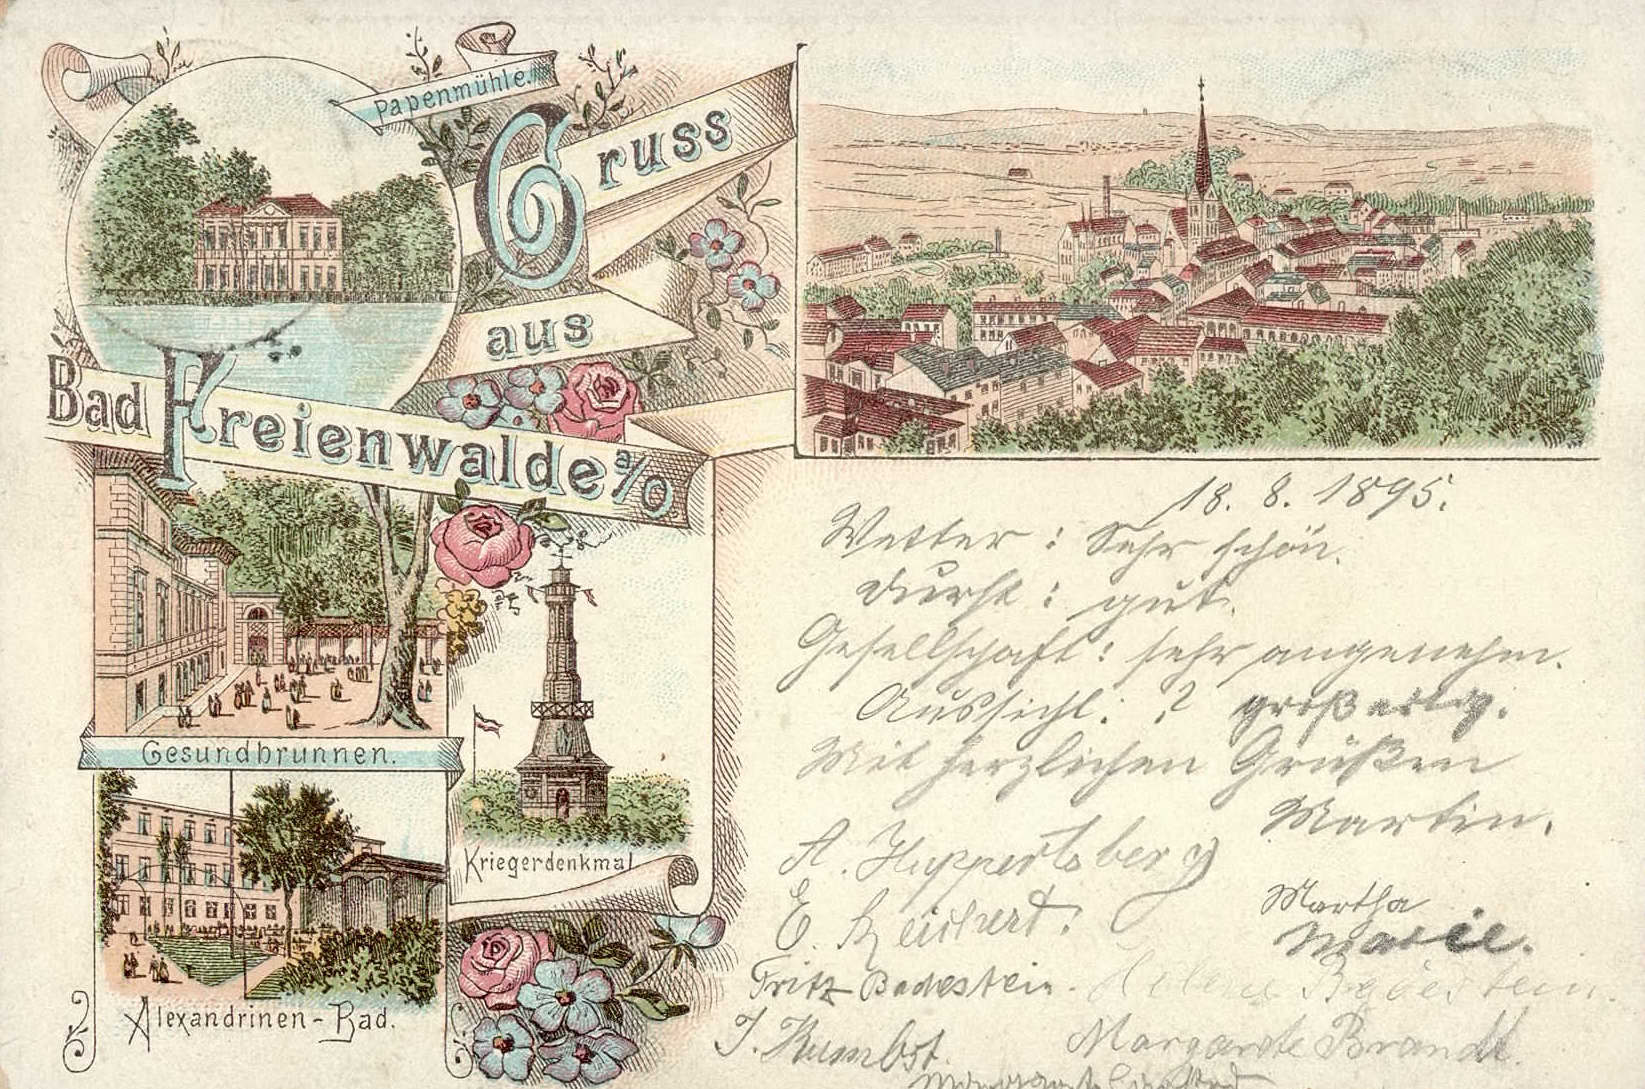 Papenmühle.
Gruss
aus
Bad Freienwalde a/O
Gesundbrunnen.
Kriegerdenkmal
Alexandrinen-Bad.
18. 8. 1895.
Wetter: Sehr schön.
Durst: gut.
Gesellschaft: sehr angenehm.
Aussicht: ? großartig.
Mit herzlichen Grüßen
Martin.
A. Huppertsberg
Martha
E. Reichert.
Marie.
Fritz Badestein.
Margarete Brandt.